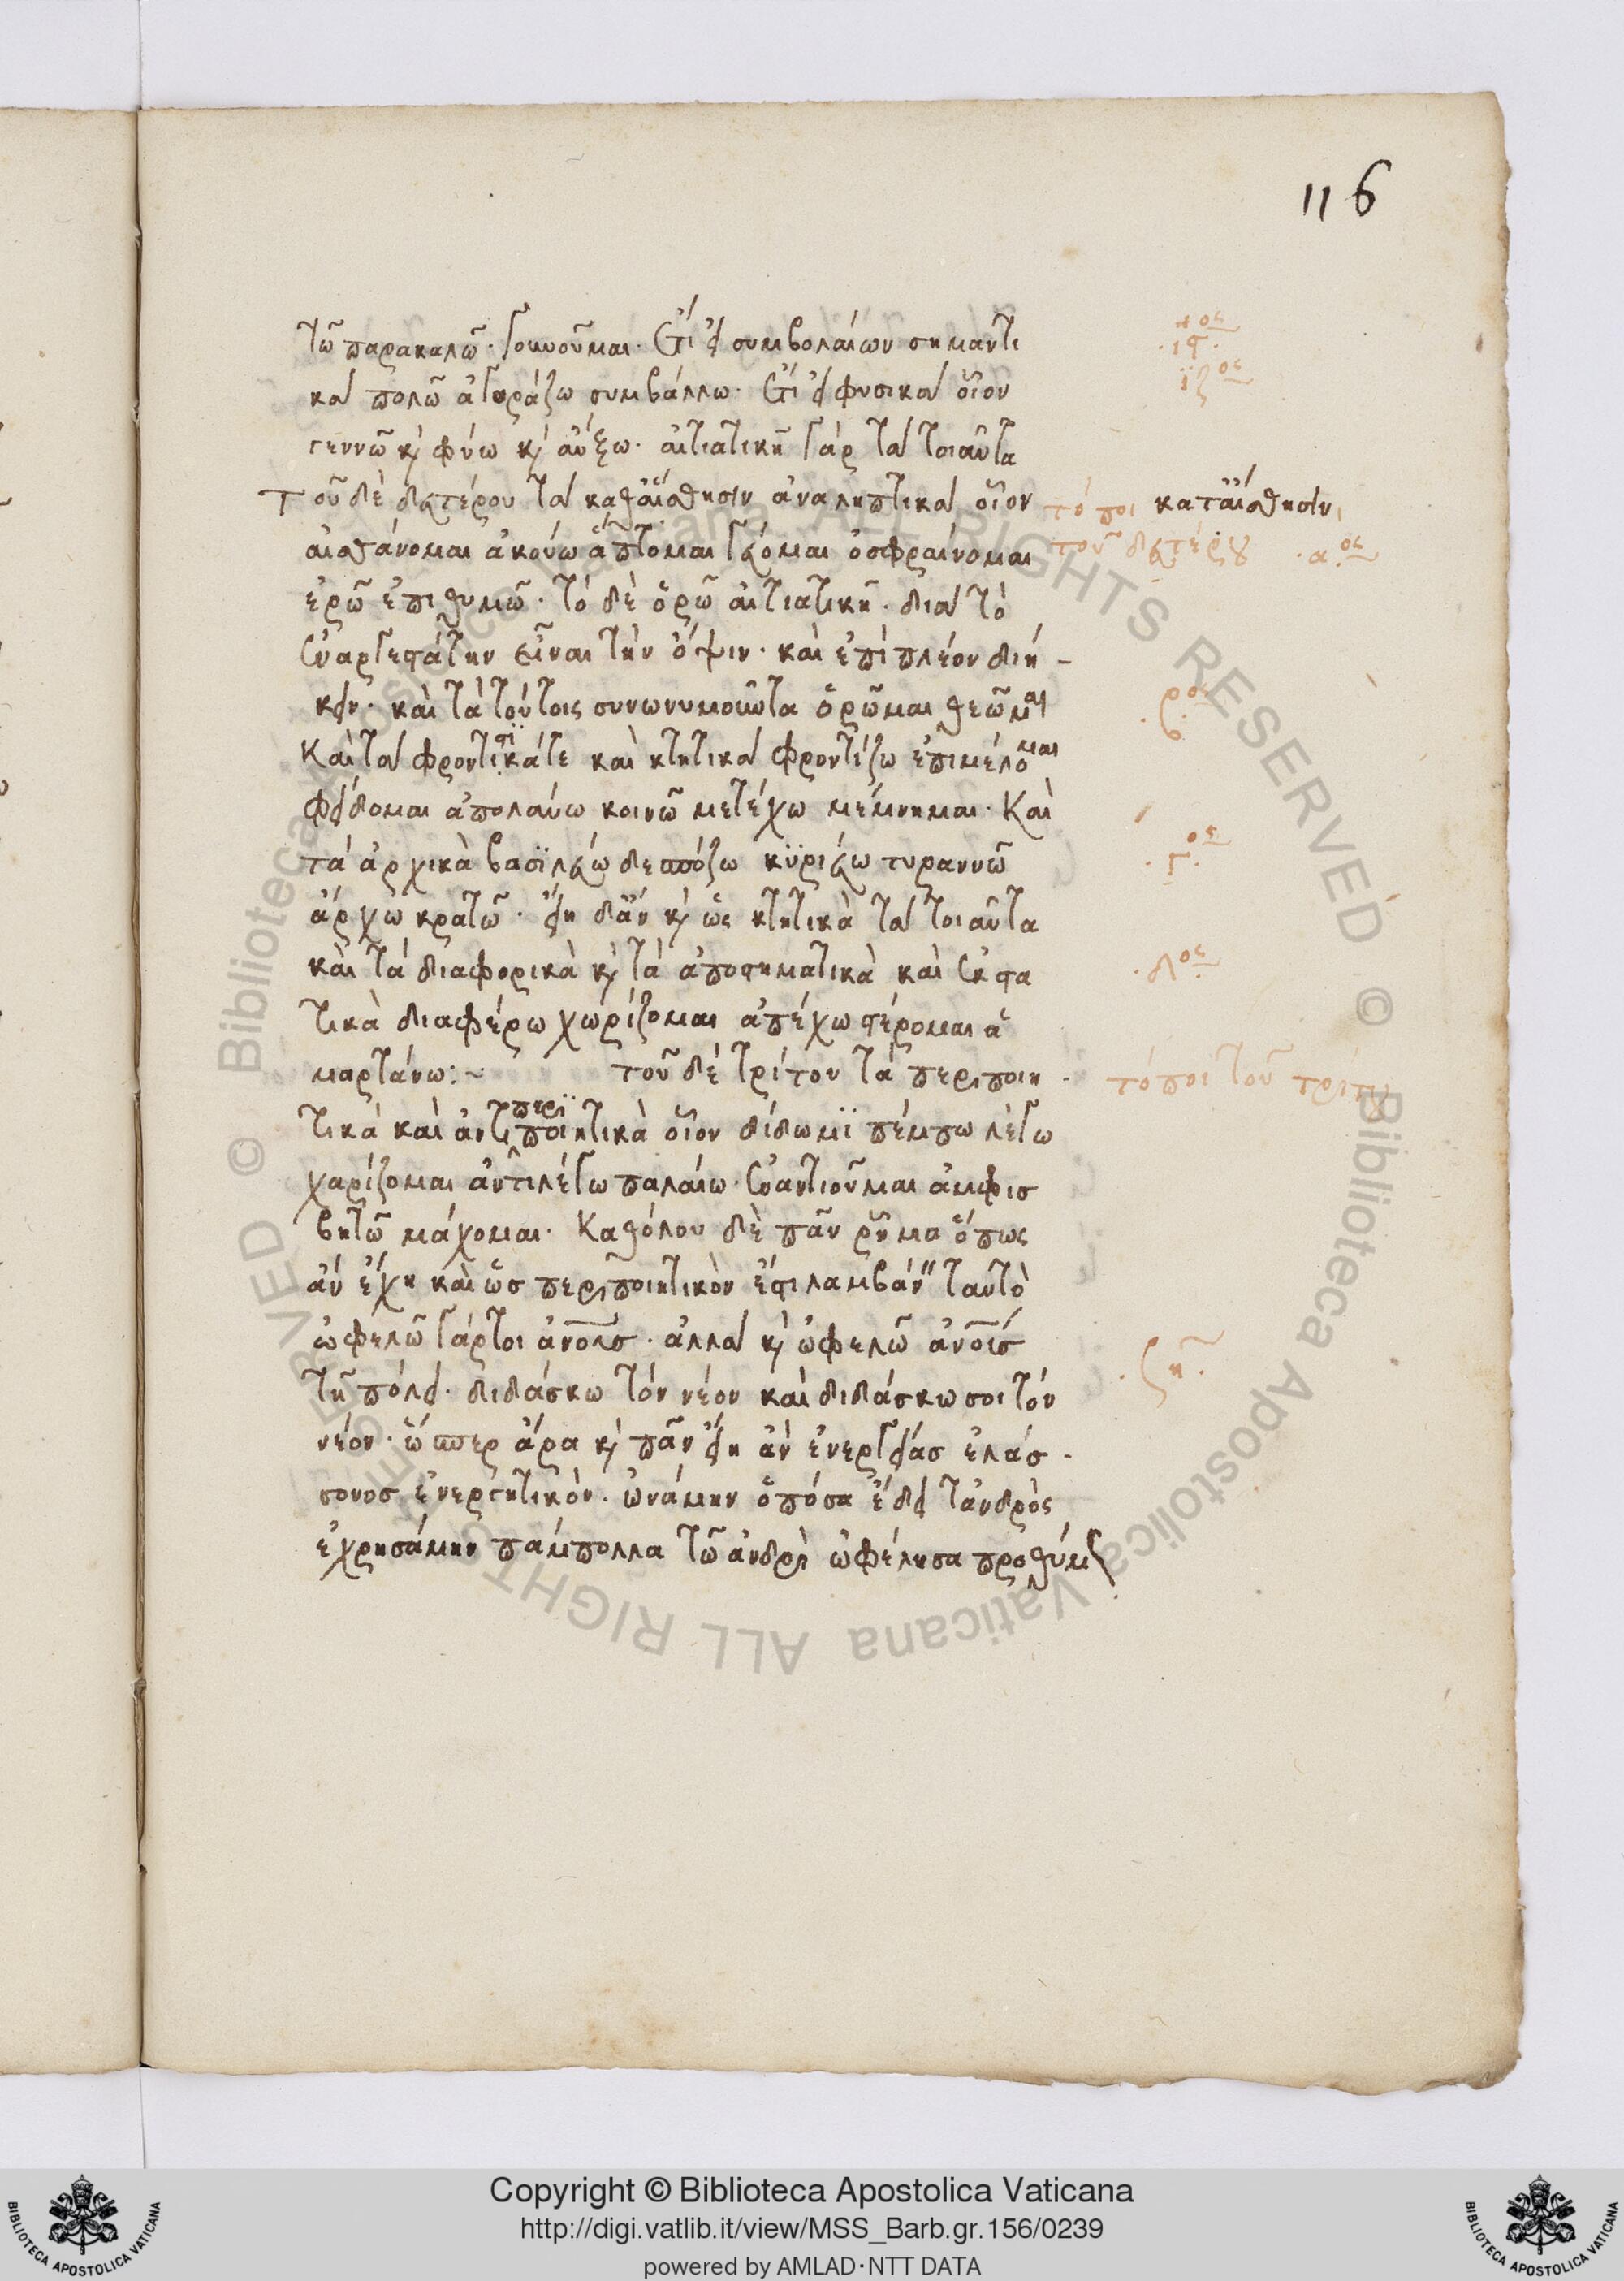 116
τῶ παρακαλῶ· γουνοῦμαι· ἔτι εἰ συμβολαίων σημαντι
κὰ πολῶ ἀγοράζω συμβάλλω· ἔτι εἰ φυσικὰ οἷον
γεννῶ κὶ φύω κὶ αὔξω· αἰτιατικῆ γὰρ τὰ τοιαῦτα
Τοῦ δὲ δευτέρου τὰ καθαἴσθησιν ἀναληπτικὰ οἷον
τόποι καταἴσθησιν
τοῦ δευτέρου ·α·ος
αἰσθάνομαι ἀκούω ἅπτομαι γεύομαι ὀσφραίνομαι
ἐρῶ ἐπιθυμῶ· τὸ δὲ ὁρῶ αἰτιατικῆ· διὰ τὸ
ἐναργεστάτην εἶναι τὴν ὄψιν· καὶ ἐπὶ πλέον διή-
κει· καὶ τὰ τούτοις συνωνυμοῦντα ὁρῶμαι θεῶμαι
Καὶ τὰ φροντιστικά τε καὶ κτητικὰ φροντίζω ἐπιμέλομαι
φείδομαι ἀπολαύω κοινῶ μετέχω μέμνημαι· Καὶ
τὰ ἀρχικὰ βασϊλεύω δεσπόζω κϋριεύω τυραννῶ
·γ·ος
ἄρχω κρατῶ· εἴη δἂν κὶ ὡς κτητικὰ τὰ τοιαῦτα
καὶ τὰ διαφορικὰ κὶ τὰ ἀποστηματικὰ καὶ ἐκστα
·δ·ος
τικὰ διαφέρω χωρίζομαι ἀπέχω στέρομαι ἁ
μαρτάνω:~ τοῦ δὲ τρίτου τὰ περιποιη-
τόποι τοῦ τρίτου
τικὰ καὶ ἀντιπεριποιητικὰ οἷον δίδωμϊ πέμπω λέγω
χαρίζομαι ἀντιλέγω παλαίω· ἐναντιοῦμαι ἀμφισ
βητῶ μάχομαι· Καθόλου δὲ πᾶν ῥῆμα ὅπως
ἂν ἔχη καὶ ὡσ περιποιητικὸν ἐπιλαμβάν ταυτὸ
ὠφελῶ γάρτοι ἀνους· ἀλλὰ κὶ ὠφελῶ ἀνοις
τῆ πόλει· διδάσκω τὸν νέον καὶ διδάσκω σοι τὸν
νέον· ὥσπερ ἄρα κὶ πᾶν εἴη ἂν ἐνεργείας ἐλάσ-
σονοσ ἐνεργητικόν· ὠνάμην ὁπόσα ἔδει τἀνδρὸς
ἐχρησάμην πάμπολλα τῶ ἀνδρὶ ὠφέλησα προθύμως
Copyright © Biblioteca Apostolica Vaticana
http://digi.vatlib.it/view/MSS_Barb.gr.156/0239
powered by AMLAD·NTT DATA
BIBLIOTECA APOSTOLICA VATICANA
BIBLIOTECA APOSTOLICA VATICANA
© Biblioteca Apostolica Vaticana ALL RIGHTS RESERVED © Biblioteca Apostolica Vaticana ALL RIGHTS RESERVED